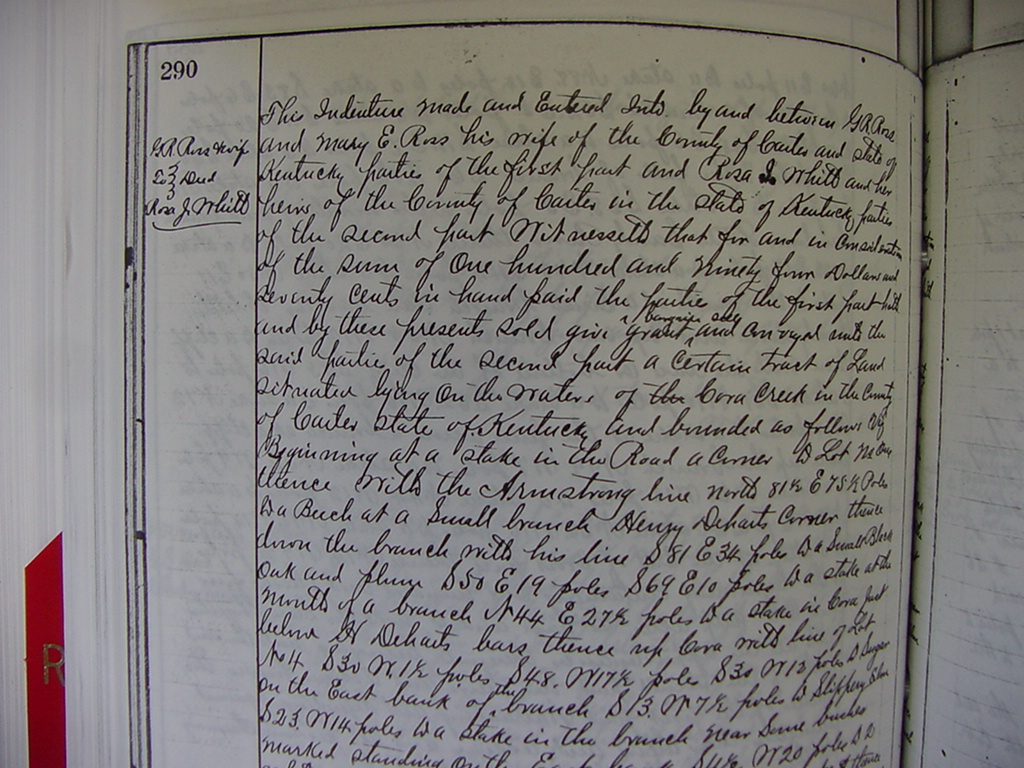 290
G.R. Ross & wife
To } Deed
Rosa J. Whitt
This Indenture made and Entered Into by and between G R Ross
and Mary E. Ross his wife of the County of Carter and State of
Kentucky parties of the first part and Rosa J. Whitt and her
heirs of the County of Carter in the State of Kentucky parties
of the second part Witnesseth that for and in Consideration
of the sum of One hundred and ninety four Dollars and
seventy cents in hand paid the partie of the first part hath
and by these presents sold give grant bargain sell and Conveyed unto the
said partie of the second part a Certain tract of Land
situated lying On the waters of the Cora Creek in the County
of Carter State of Kentucky and bounded as follows Viz
Beginning at a stake in the Road a Corner to Lot No One
thence with the Armstrong line north 81½ E 75½ Poles
to a Beech at a Small branch Henry Deharts Corner thence
down the branch with his line S 81 E 34 poles to a Small Black
Oak and plum S 50 E 19 poles S 69 E 10 poles to a stake at the
mouth of a branch N 44 E 27½ poles to a stake in Cora just
below H Deharts bars thence up Cora with line of Lot
No 4 S 30 W. 1½ poles S 48. W 17½ poles S 30 W 12 poles to
on the East bank of the branch S 13. W 7½ poles to Slippery Elm
S 23. W 14 poles to a Stake in the branch near Some bushes
marked standing On the East bank W 20 poles
R